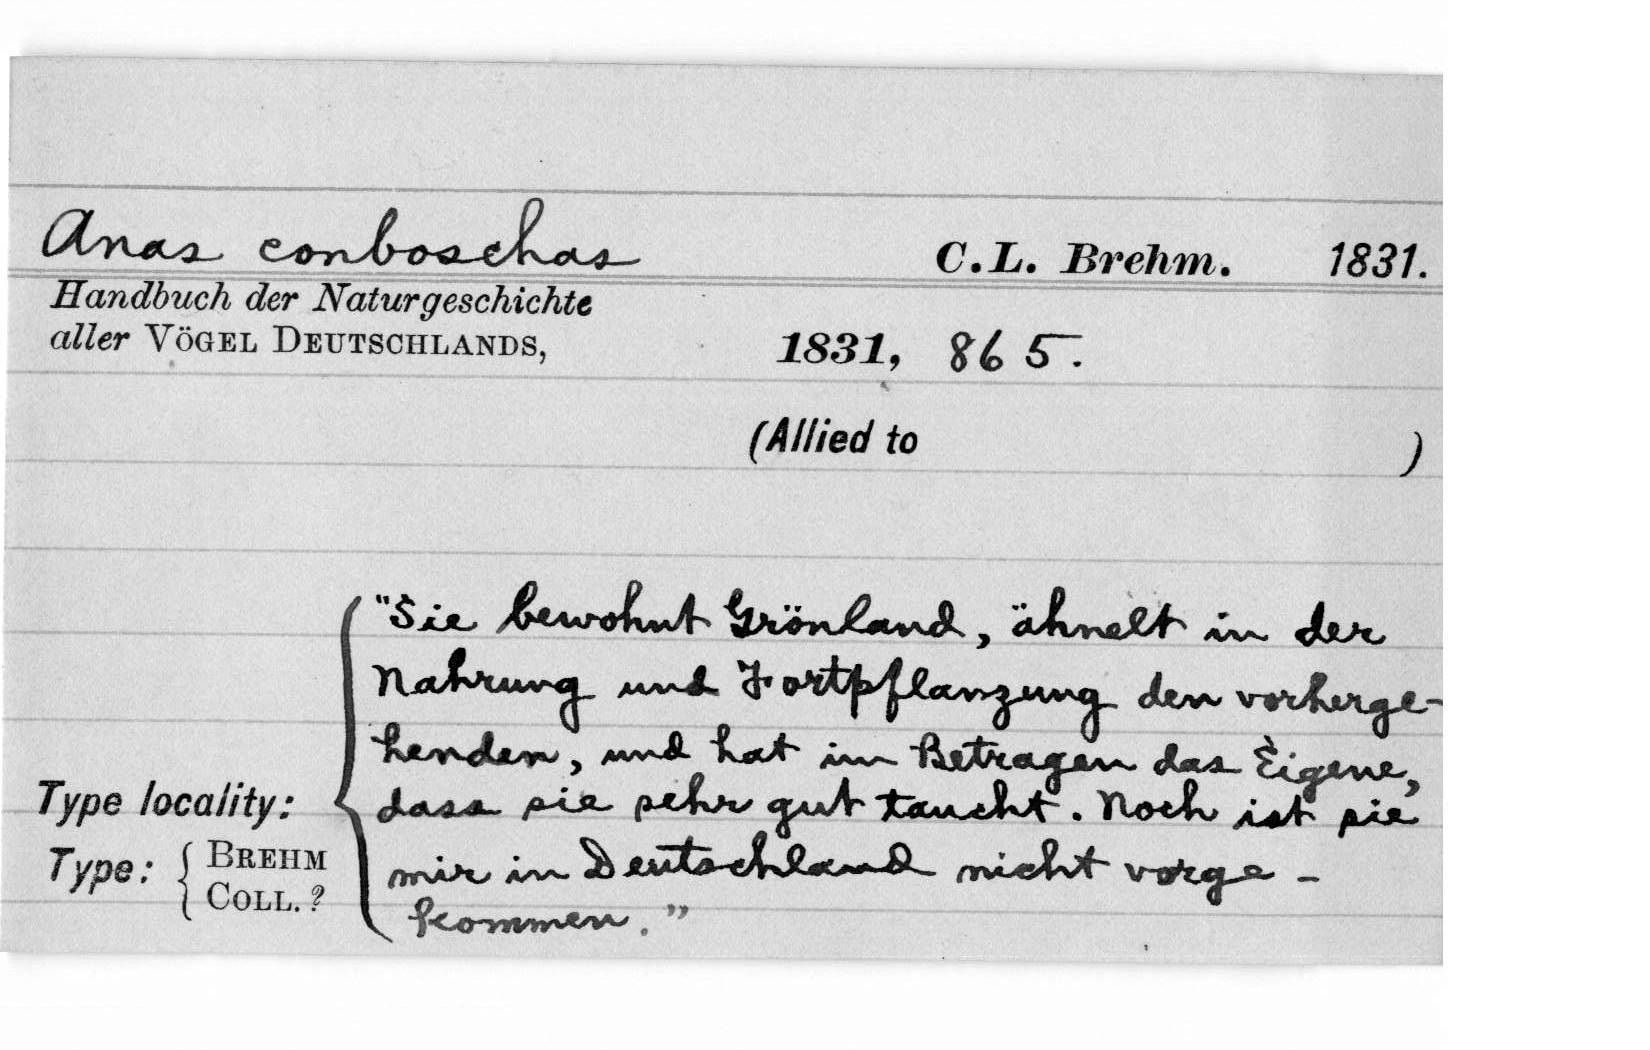 Anas conboschas C.L. Brehm. 1831.
Handbuch der Naturgeschichte
aller VÖGEL DEUTSCHLANDS, 1831, 865.
(Allied to )
"Sie bewohnt Grönland, ähnelt in der
Nahrung und Fortpflanzung den vorherge-
henden, und hat im Betragen das Eigene,
Type locality: dass sie sehr gut taucht. Noch ist sie
Type: { BREHM COLL. ? mir in Deutschland nicht vorge-
kommen."